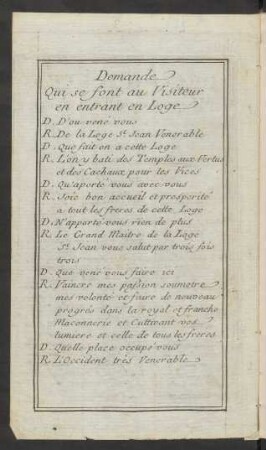 Demande
Qui se font au Visiteur
en entrant en Loge
D. D'ou vené vous
R. De la Loge St. Jean Venerable
D. Que fait on a cette Loge
R. L'on y bati des Temples aux Vertus
et des Cachaux pour les Vices
D. Qu'aporté vous avec vous
R. Joie bon accueil et prosperité
a tout les freres de cette Loge
D. N'apporté vous rien de plus
R. Le Grand Maitre de la Loge
St. Jean vous salut par trois fois
trois
D. Que vené vous faire ici
R. Vaincre mes passion soumetre
mes volonté et faire de nouveau
progrés dans la royal et franche
Maconnerie et Cultivant vos
lumiere et celle de tous les freres
D. Quelle place occupé vous
R. L'Occident très Venerable